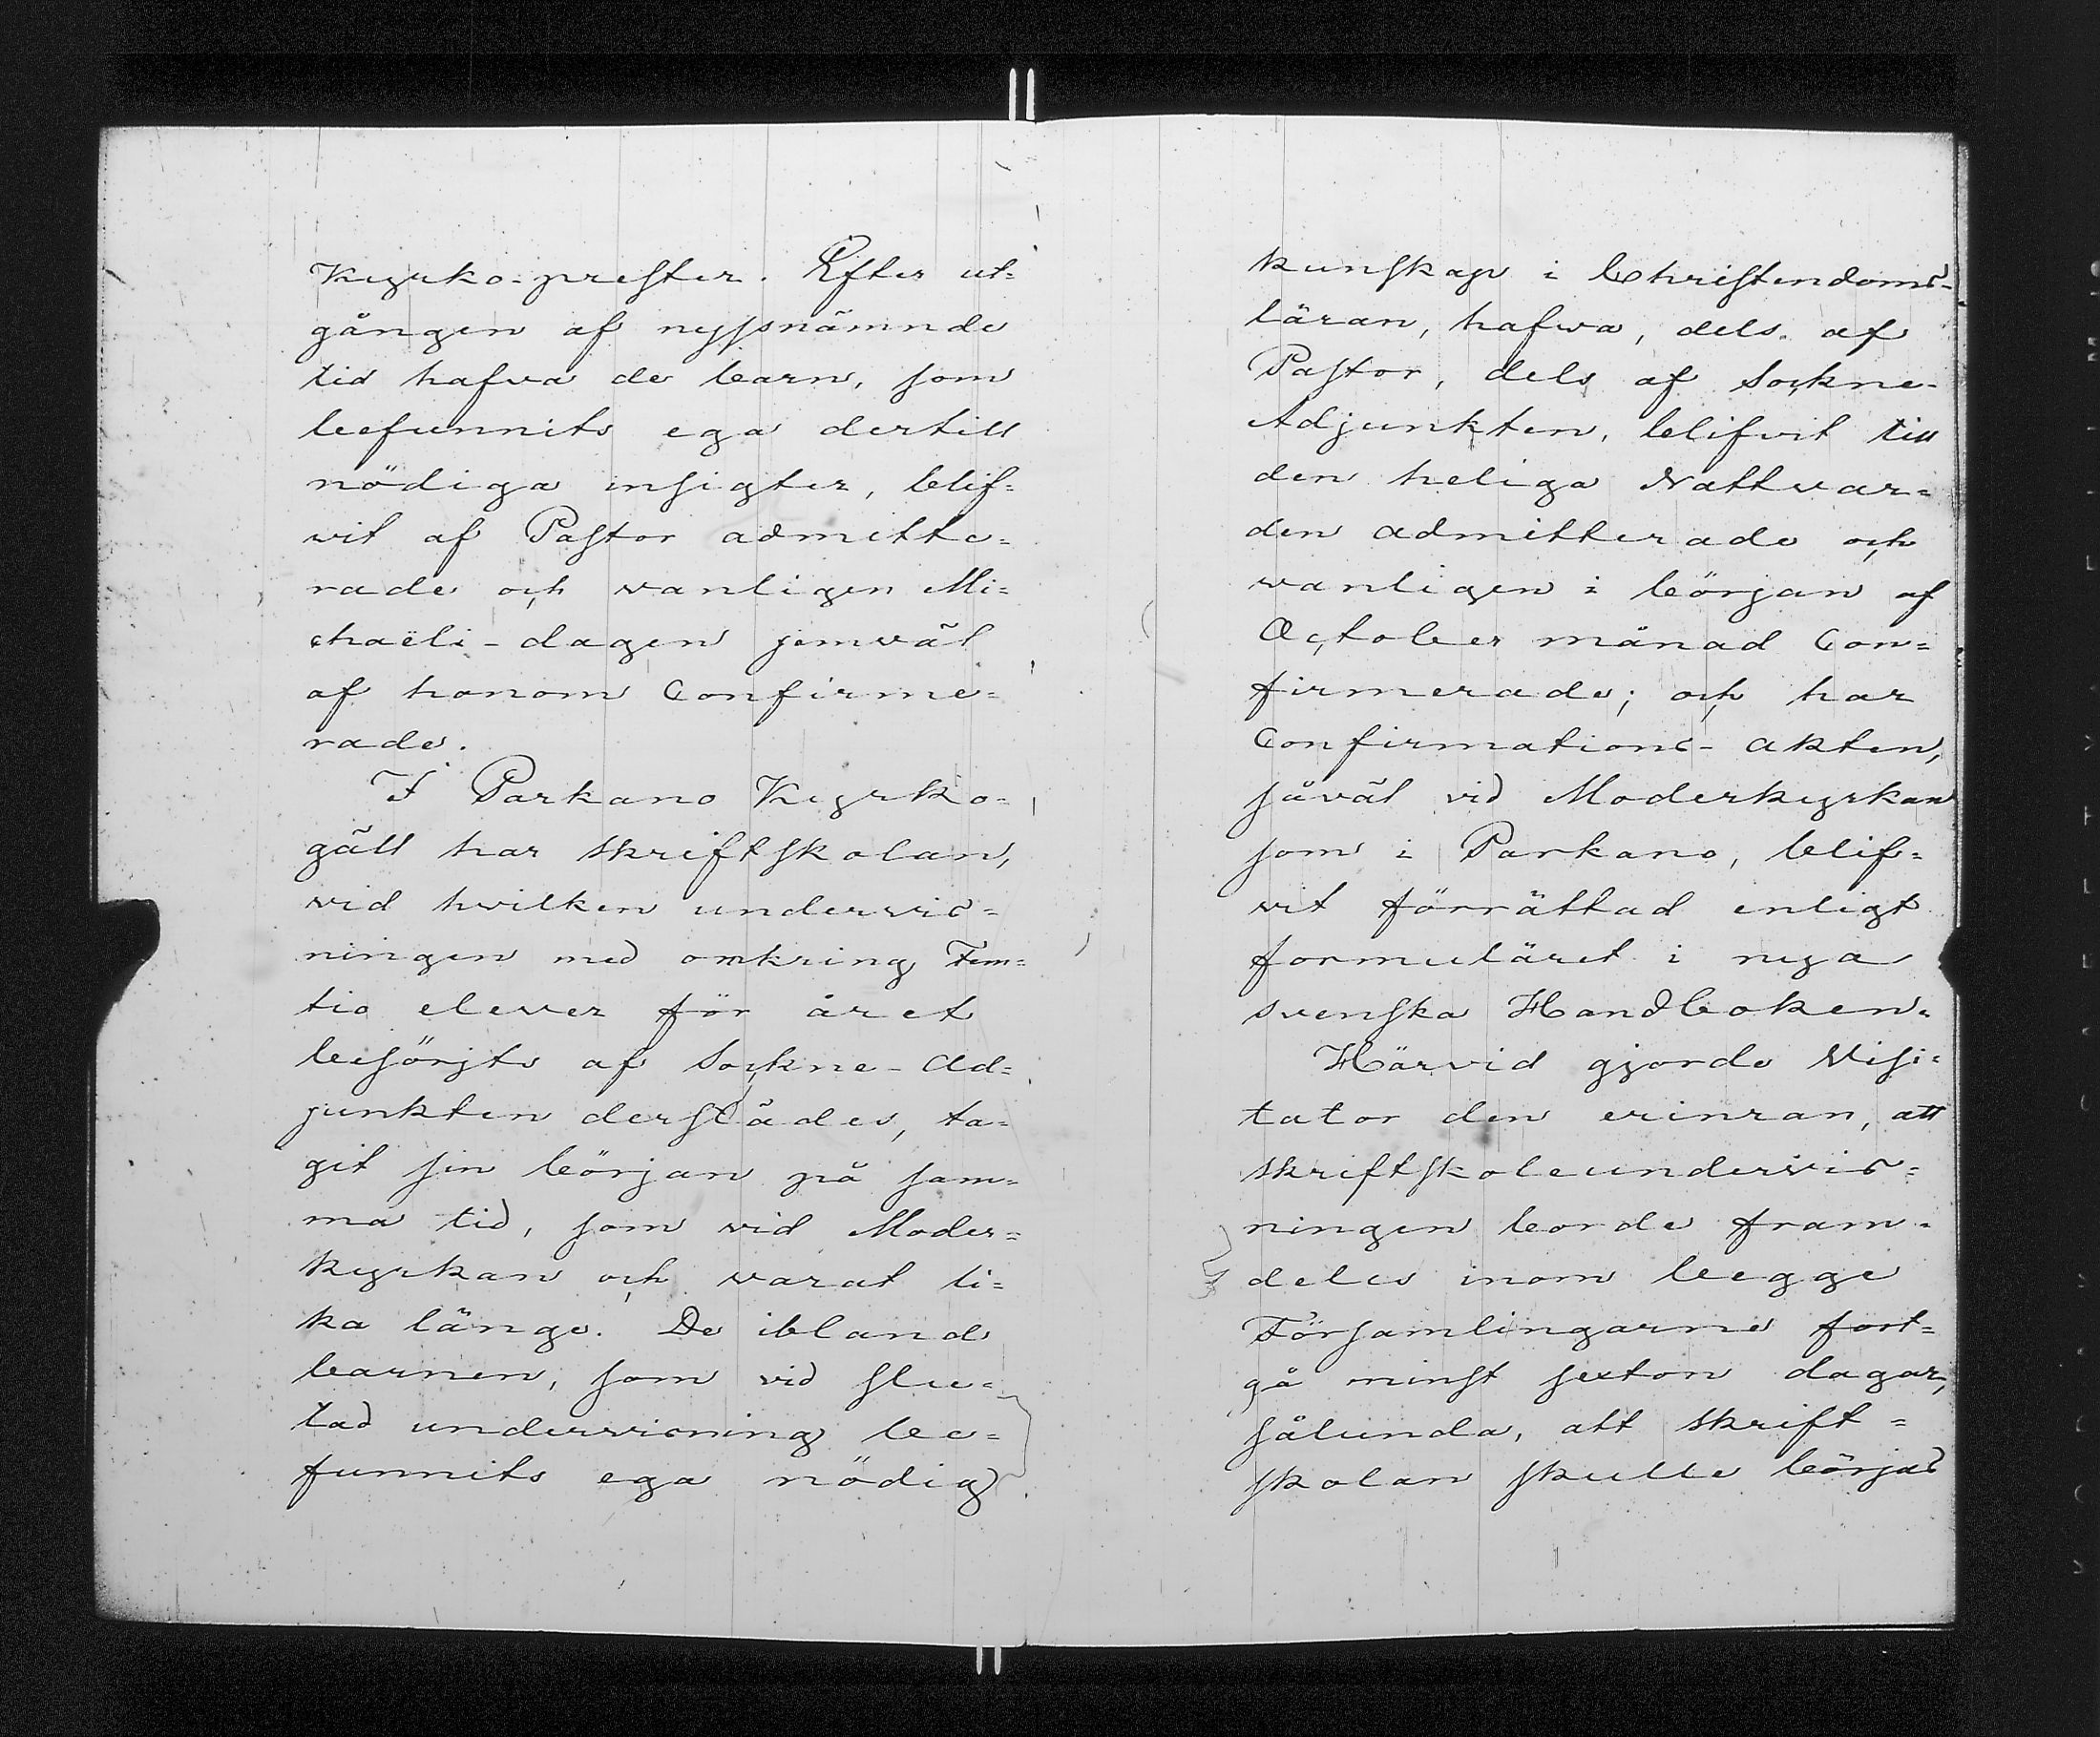 Kyrko=prester. Efter ut=
gången af nyssnämnde
tid hafva de barn, som
befunnits ega dertill
nödiga insigter, blif=
vit af Pastor admitte=
rade och vanligen Mi=
chaëli-dagen jemväl
af honom Confirme=
rade.
I Parkano Kyrko=
gäll har skriftskolan,
vid hvilken undervis=
ningen med omkring Fem=
tio elever för året
besörjts af Sockne-Ad=
junkten derstädes, ta=
git sin början på sam=
ma tid, som vid Moder=
kyrkan och varat li=
ka länge. De ibland
barnen, som vid slu=
tad undervisning be=
funnits ega nödig
kunskap i Christendoms-
läran, hafva, dels af
Pastor, dels af Sockne-
Adjunkten, blifvit till
den heliga Nattvar=
den admitterade och
vanligen i början af
October månad Con=
firmerade; och har
Confirmations-akten,
såväl vid Moderkyrkan
som i Parkano, blif=
vit förrättad enligt
formuläret i nya
svenska Handboken.
Härvid gjorde Visi=
tator den erinran, att
skriftskoleundervis=
ningen borde fram=
deles inom begge
Församlingarne fort=
gå minst sexton dagar,
sålunda, att skrift=
skolan skulle börjas